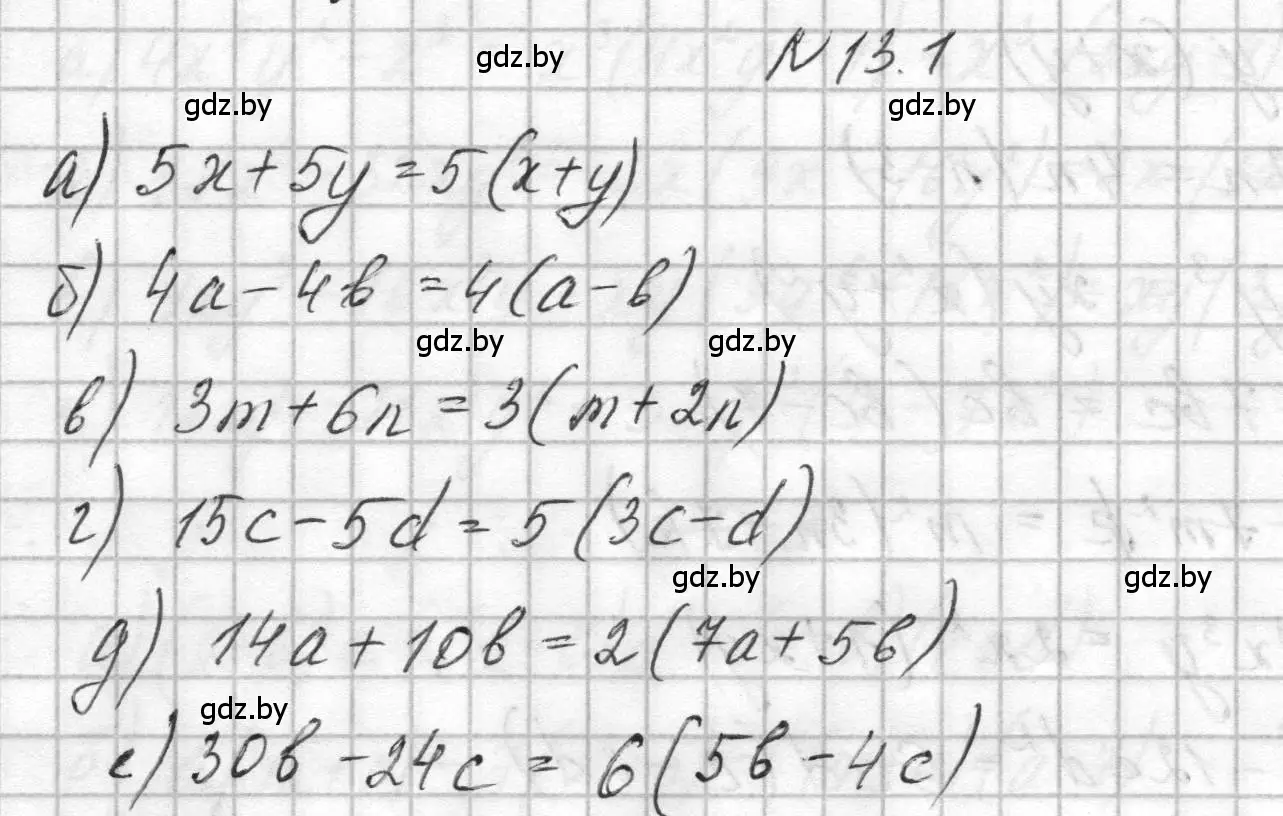 gdz.by
N 13.1
gdz.by gdz.by
а) 5x + 5y = 5 (x + y)
б) 4a - 4b = 4 (a - b)
gdz.by gdz.by
в) 3m + 6n = 3 (m + 2n)
г) 15c - 5d = 5 (3c - d)
gdz.by gdz.by
д) 14a + 10b = 2 (7a + 5b)
gdz.by
е) 30b - 24c = 6 (5b - 4c)